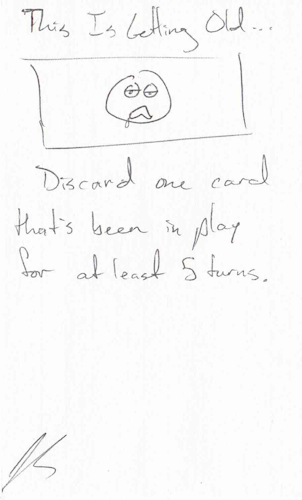 This Is Getting Old...
Discard one card
that's been in play
for at least 5 turns.